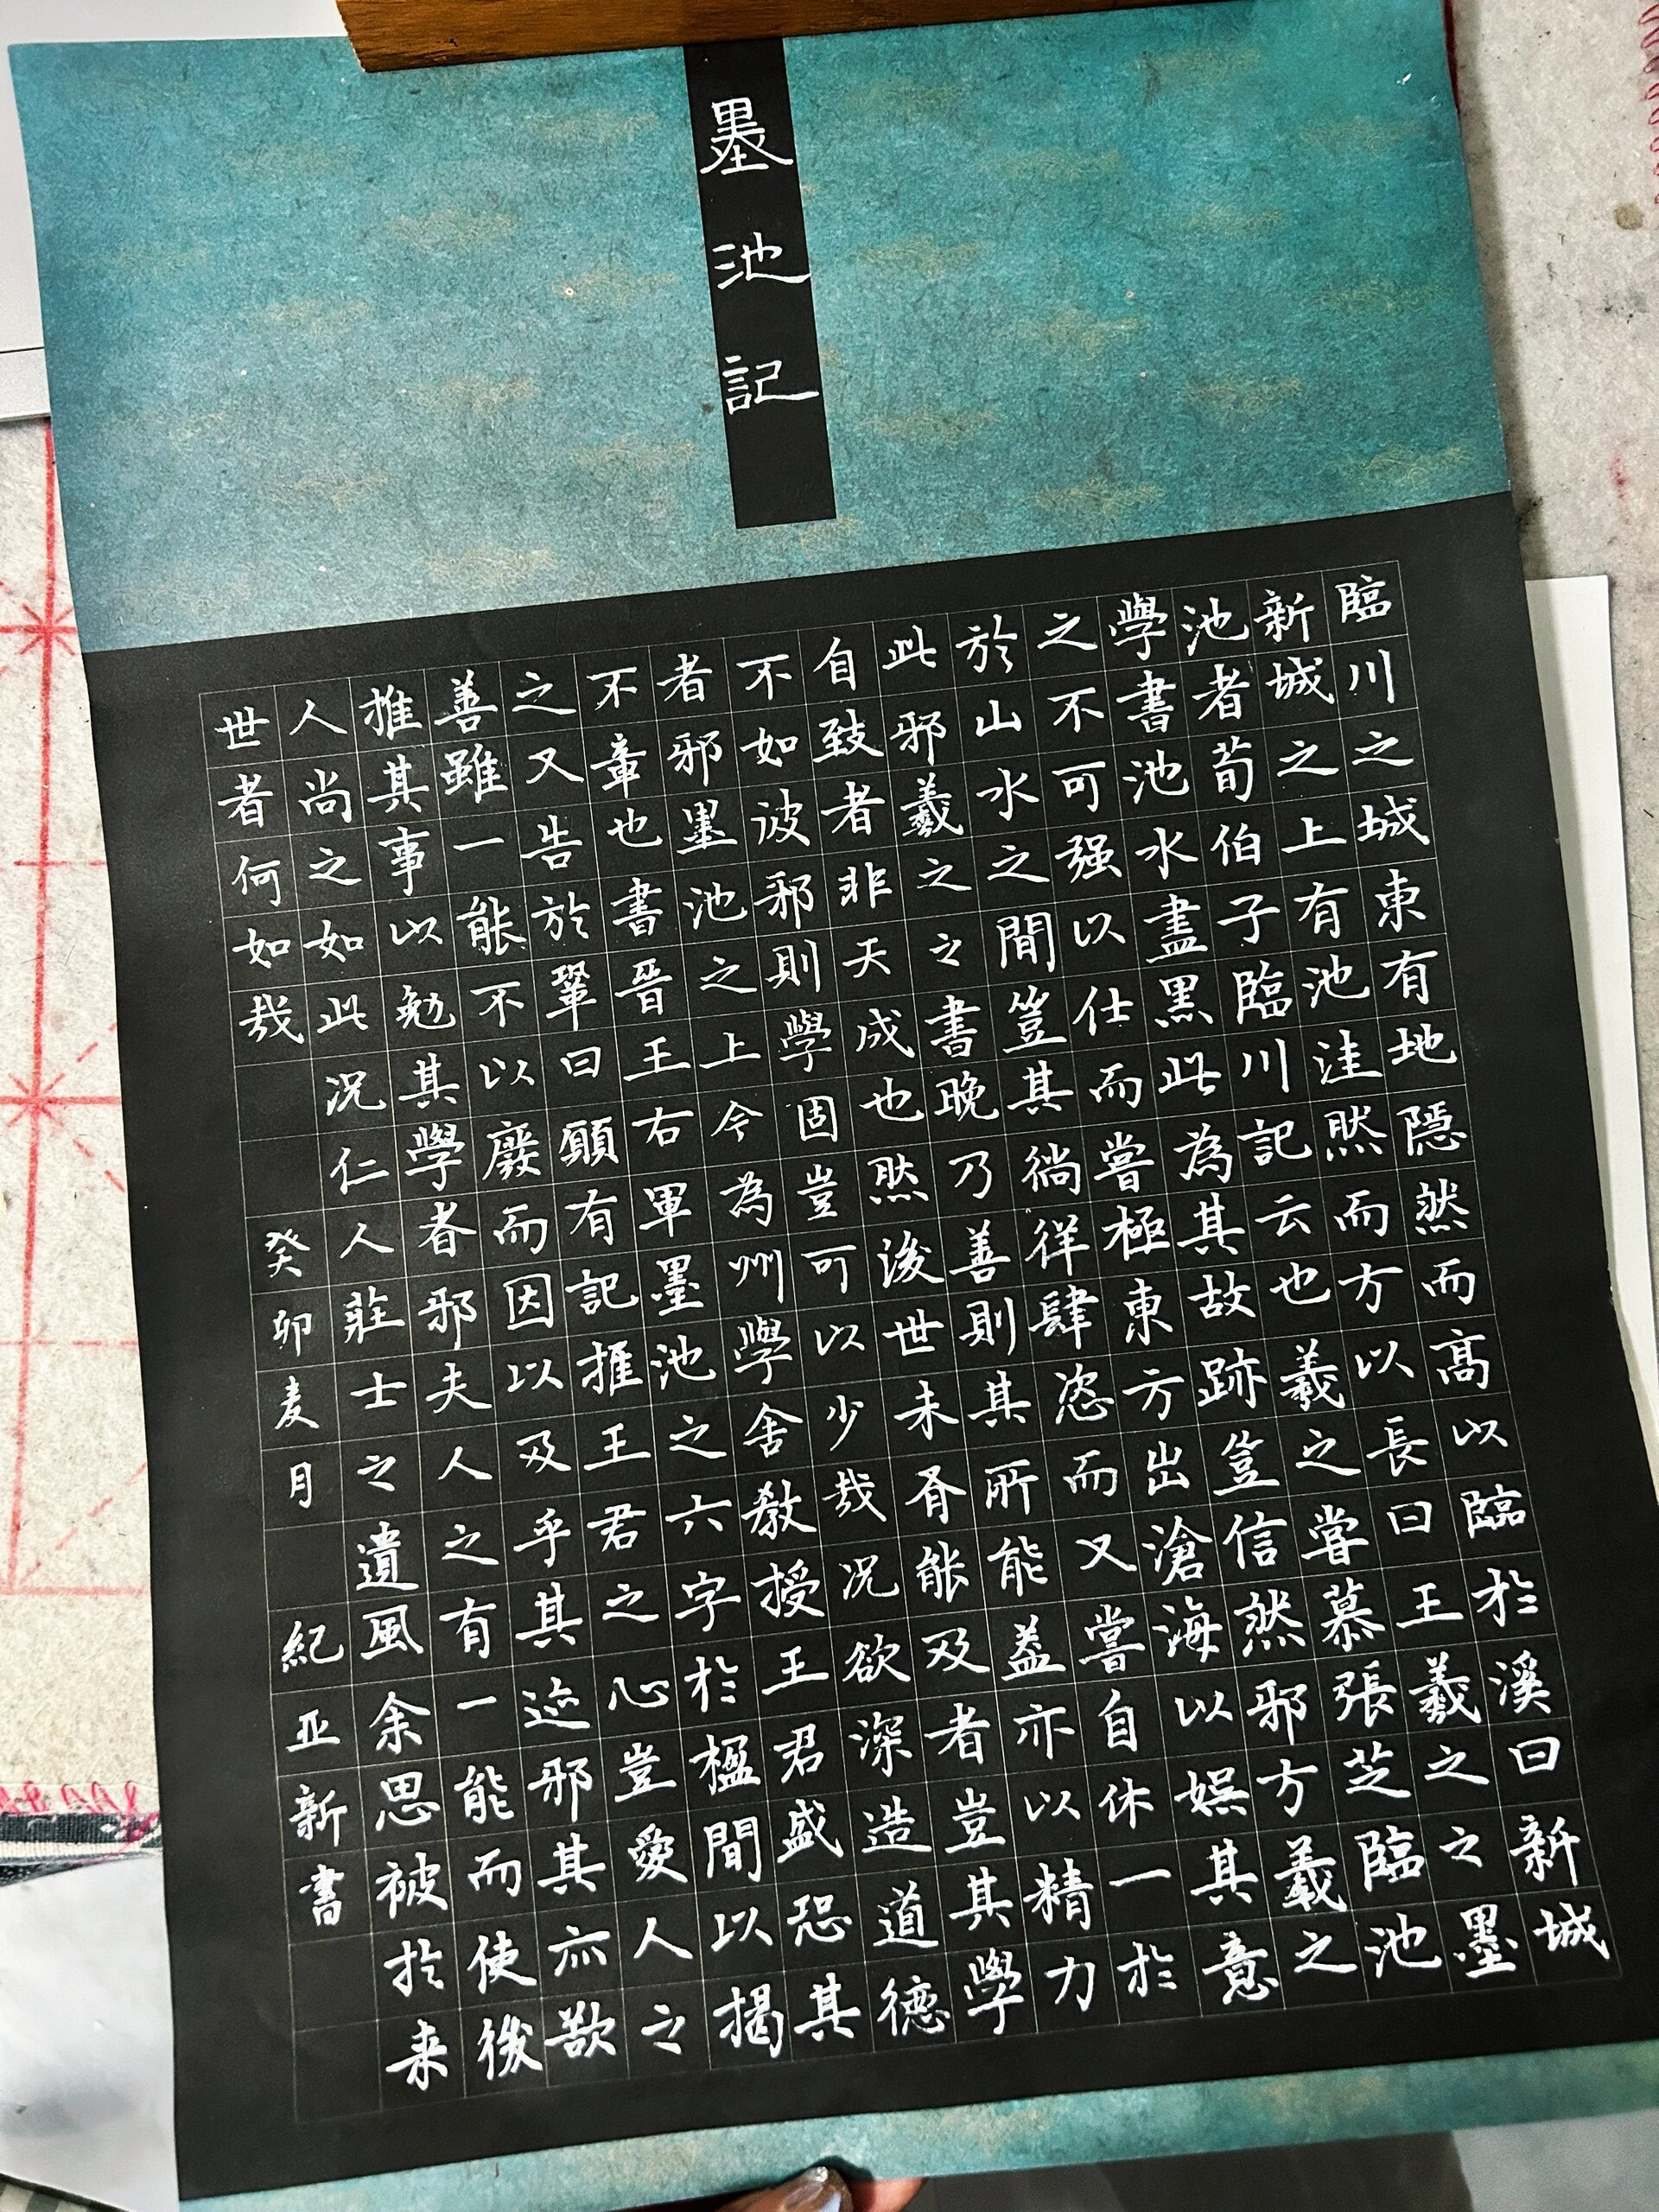 墨池記
臨川之城東有地隱然而高以臨於溪曰新城
新城之上有池洼然而方以長曰王羲之之墨
池者荀伯子臨川記云也羲之嘗慕張芝臨池
學書池水盡黑此為其故跡豈信然邪方羲之
之不可强以仕而嘗極東方出滄海以娛其意
於山水之間豈其徜徉肆恣而又嘗自休一於
此邪羲之之書晚乃善則其所能蓋亦以精力
自致者非天成也然後世未有能及者豈其學
不如彼邪則學固豈可以少哉况欲深造道德
者邪墨池之上今為州學舍教授王君盛恐其
不章也書晉王右軍墨池之六字於楹間以揭
之又告於鞏曰願有記推王君之心豈愛人之
善雖一能不以廢而因以及乎其迹邪其亦欲
推其事以勉其學者邪夫人之有一能而使後
人尚之如此况仁人莊士之遺風余思被於来
世者何如哉 癸卯麦月 紀亚新書